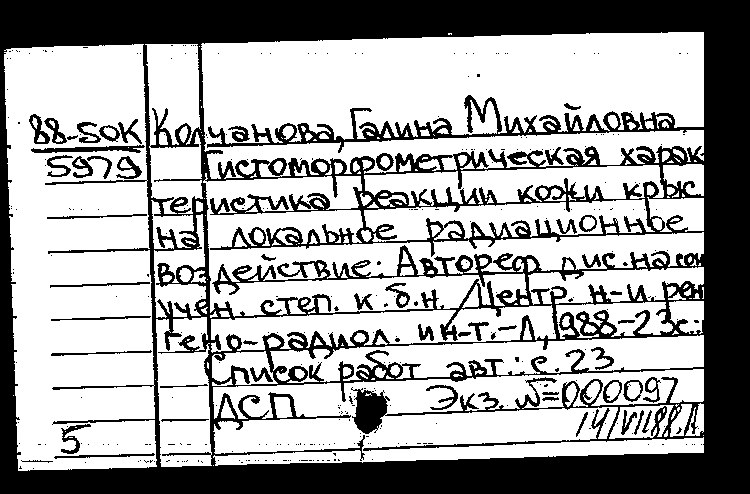 88-50К Колчанова, Галина Михайловна
5979 Гистоморфометрическая харак
теристика реакции кожи крыс
на локальное радиационное
воздействие: Автореф. дис. на сои
учен. степ. к. б. н. / Центр. н-и. рен
гено-радиол. ин-т. - Л., 1988. - 23с.:
Список работ авт.: с. 23.
ДСП. Экз. №=000097
5 14/VII88.А.